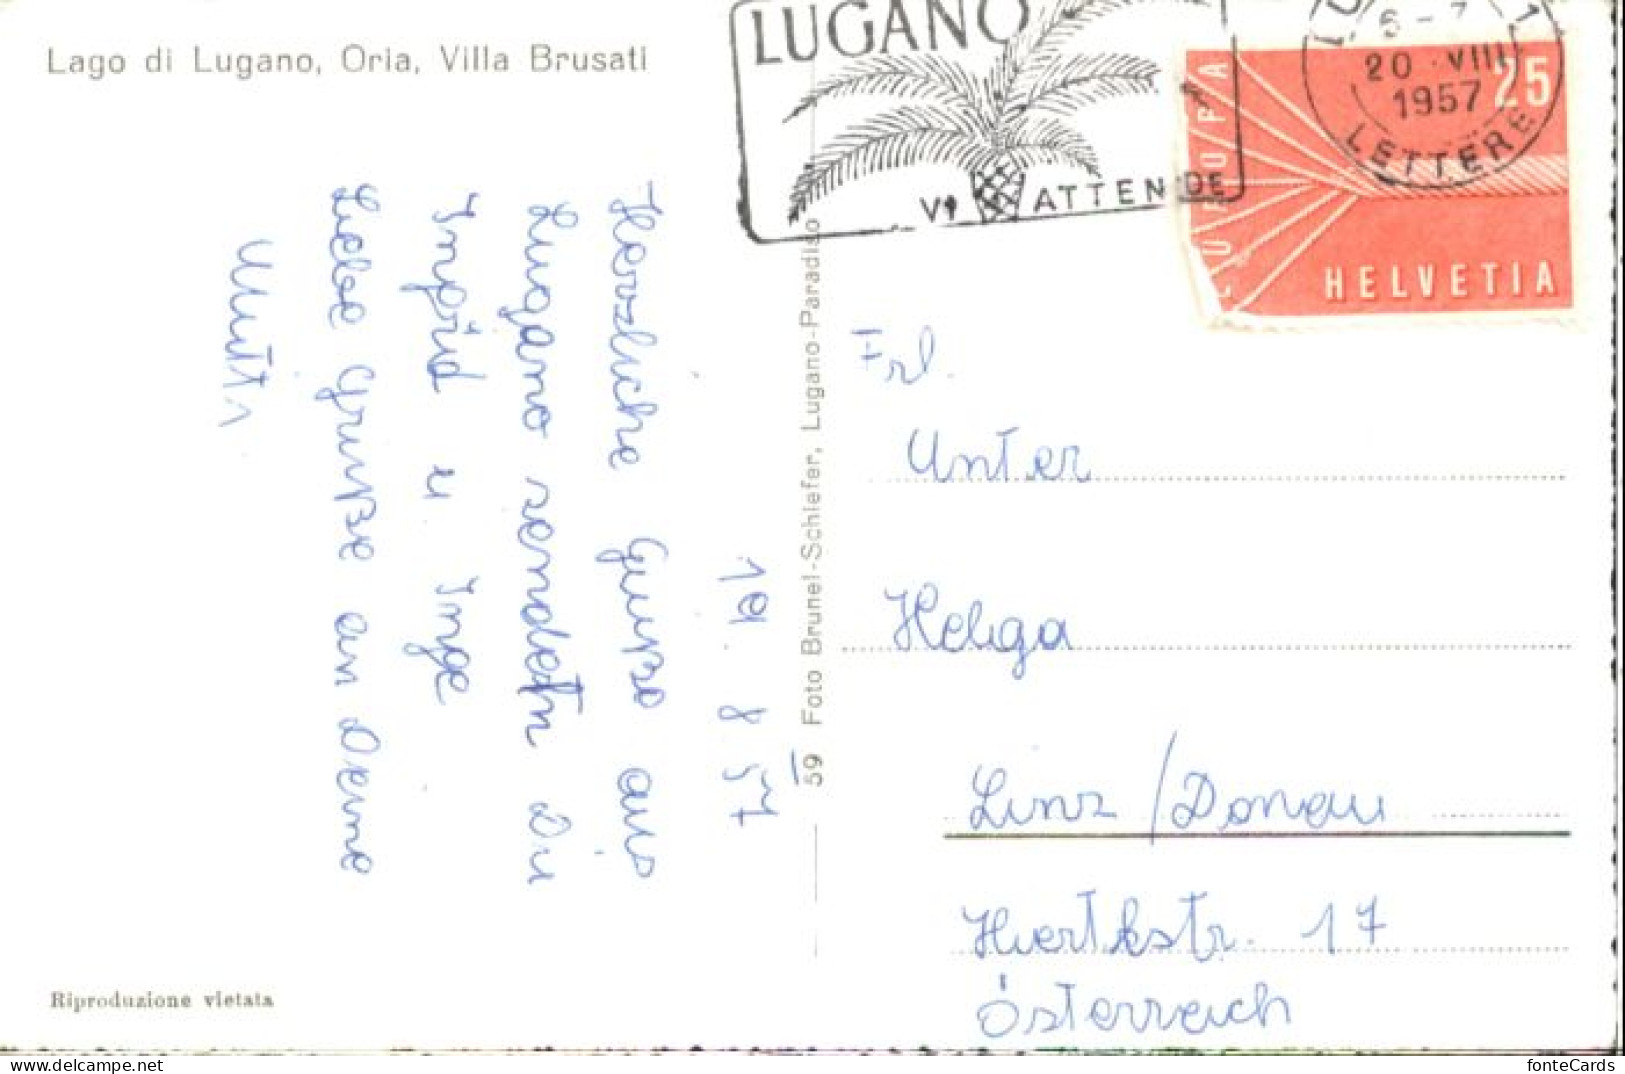 Lago di Lugano, Oria, Villa Brusati
LUGANO
VI ATTENDE
6-7
20 VIII
1957
LETTERE
25
EUROPA
HELVETIA
19. 8 57
Herzliche Grüße aus
Lugano senden Dir
Ingrid u Inge
Liebe Grüße an Deine
Mutti
59 Foto Brunel-Schiefer, Lugano-Paradiso
Frl.
Unter
Helga
Linz/Donau
str. 17
Österreich
Riproduzione vietata
fonteCards